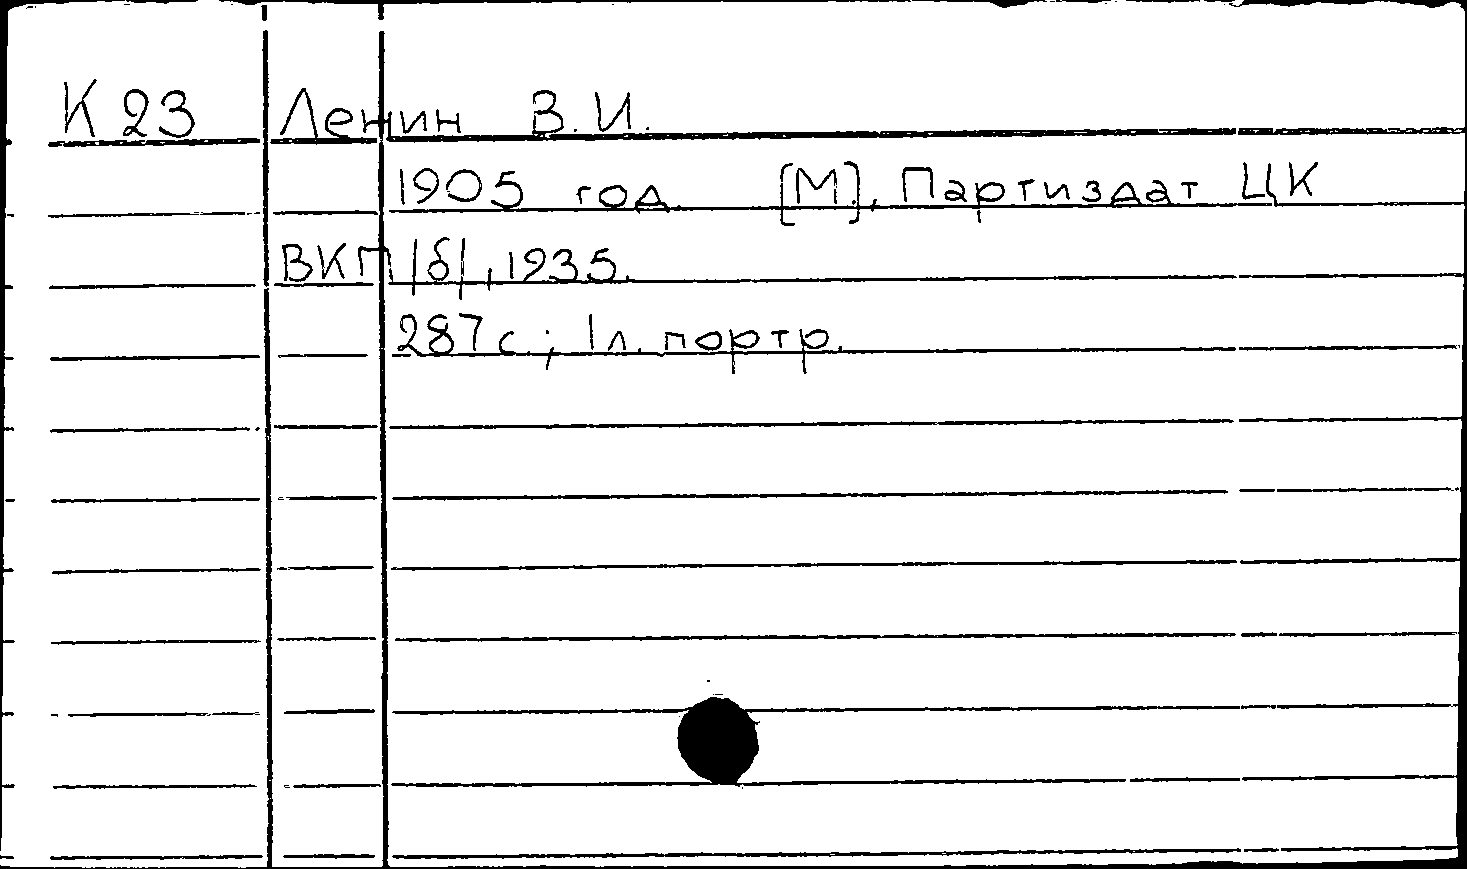 К 23 Ленин В. И.
1905 год. [М.], Партиздат ЦК
ВКП/б/, 1935.
287 с.; 1 л. портр.